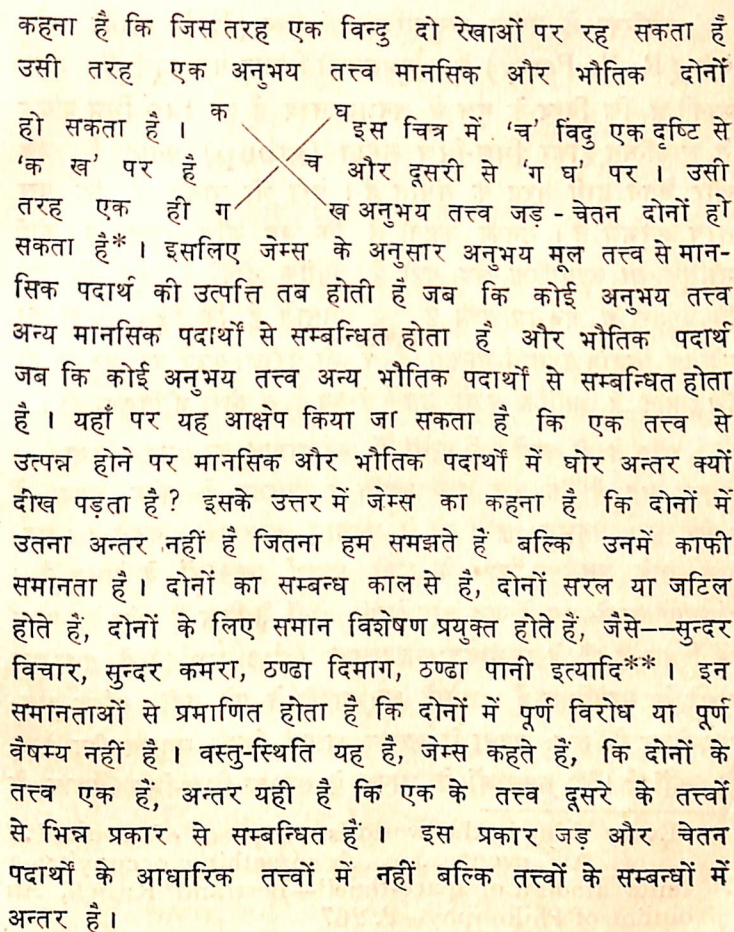 कहना है कि जिस तरह एक विन्दु दो रेखाओं पर रह सकता है
उसी तरह एक अनुभय तत्त्व मानसिक और भौतिक दोनों
हो सकता है । क घ इस चित्र में 'च' विंदु एक दृष्टि से
'क ख' पर है च और दूसरी से 'ग घ' पर । उसी
तरह एक ही ग ख अनुभय तत्त्व जड़ - चेतन दोनों हो
सकता है* । इसलिए जेम्स के अनुसार अनुभय मूल तत्त्व से मान-
सिक पदार्थ की उत्पत्ति तब होती है जब कि कोई अनुभय तत्त्व
अन्य मानसिक पदार्थों से सम्बन्धित होता है और भौतिक पदार्थ
जब कि कोई अनुभय तत्त्व अन्य भौतिक पदार्थों से सम्बन्धित होता
है । यहाँ पर यह आक्षेप किया जा सकता है कि एक तत्त्व से
उत्पन्न होने पर मानसिक और भौतिक पदार्थों में घोर अन्तर क्यों
दीख पड़ता है ? इसके उत्तर में जेम्स का कहना है कि दोनों में
उतना अन्तर नहीं है जितना हम समझते हैं बल्कि उनमें काफी
समानता है । दोनों का सम्बन्ध काल से है, दोनों सरल या जटिल
होते हैं, दोनों के लिए समान विशेषण प्रयुक्त होते हैं, जैसे——सुन्दर
विचार, सुन्दर कमरा, ठण्ढा दिमाग, ठण्ढा पानी इत्यादि** । इन
समानताओं से प्रमाणित होता है कि दोनों में पूर्ण विरोध या पूर्ण
वैषम्य नहीं है । वस्तु-स्थिति यह है, जेम्स कहते हैं, कि दोनों के
तत्त्व एक हैं, अन्तर यही है कि एक के तत्त्व दूसरे के तत्त्वों
से भिन्न प्रकार से सम्बन्धित हैं । इस प्रकार जड़ और चेतन
पदार्थों के आधारिक तत्त्वों में नहीं बल्कि तत्त्वों के सम्बन्धों में
अन्तर है ।